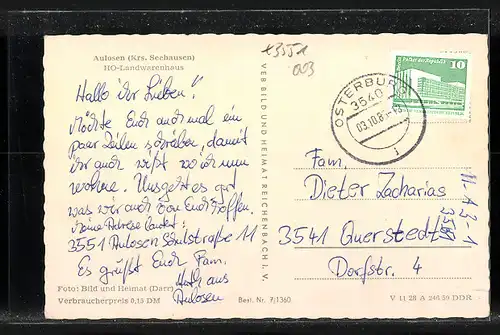 Aulosen (Krs. Seehausen)
HO-Landwarenhaus
Hallo ihr Lieben!
Möchte Euch auch mal ein
paar Zeilen schreiben, damit
ihr auch wißt wo ich nun
wohne. Uns geht es gut
was wir auch von Euch hoffen.
Meine Adresse lautet:
3551 Aulosen Schulstraße 11
Es grüßt Euch Fam.
aus
Aulosen
Foto: Bild und Heimat (Darr)
Verbraucherpreis 0,15 DM
Best. Nr. 7/1360
VEB BILD UND HEIMAT REICHENBACH I. V.
3551
003
OSTERBURG
3540
03.10.8
Palast der Republik
10
Fam.
Dieter Zacharias
3541 Querstedt
Dorfstr. 4
III-A3-1
3560
V 11 28 A 248/59 DDR